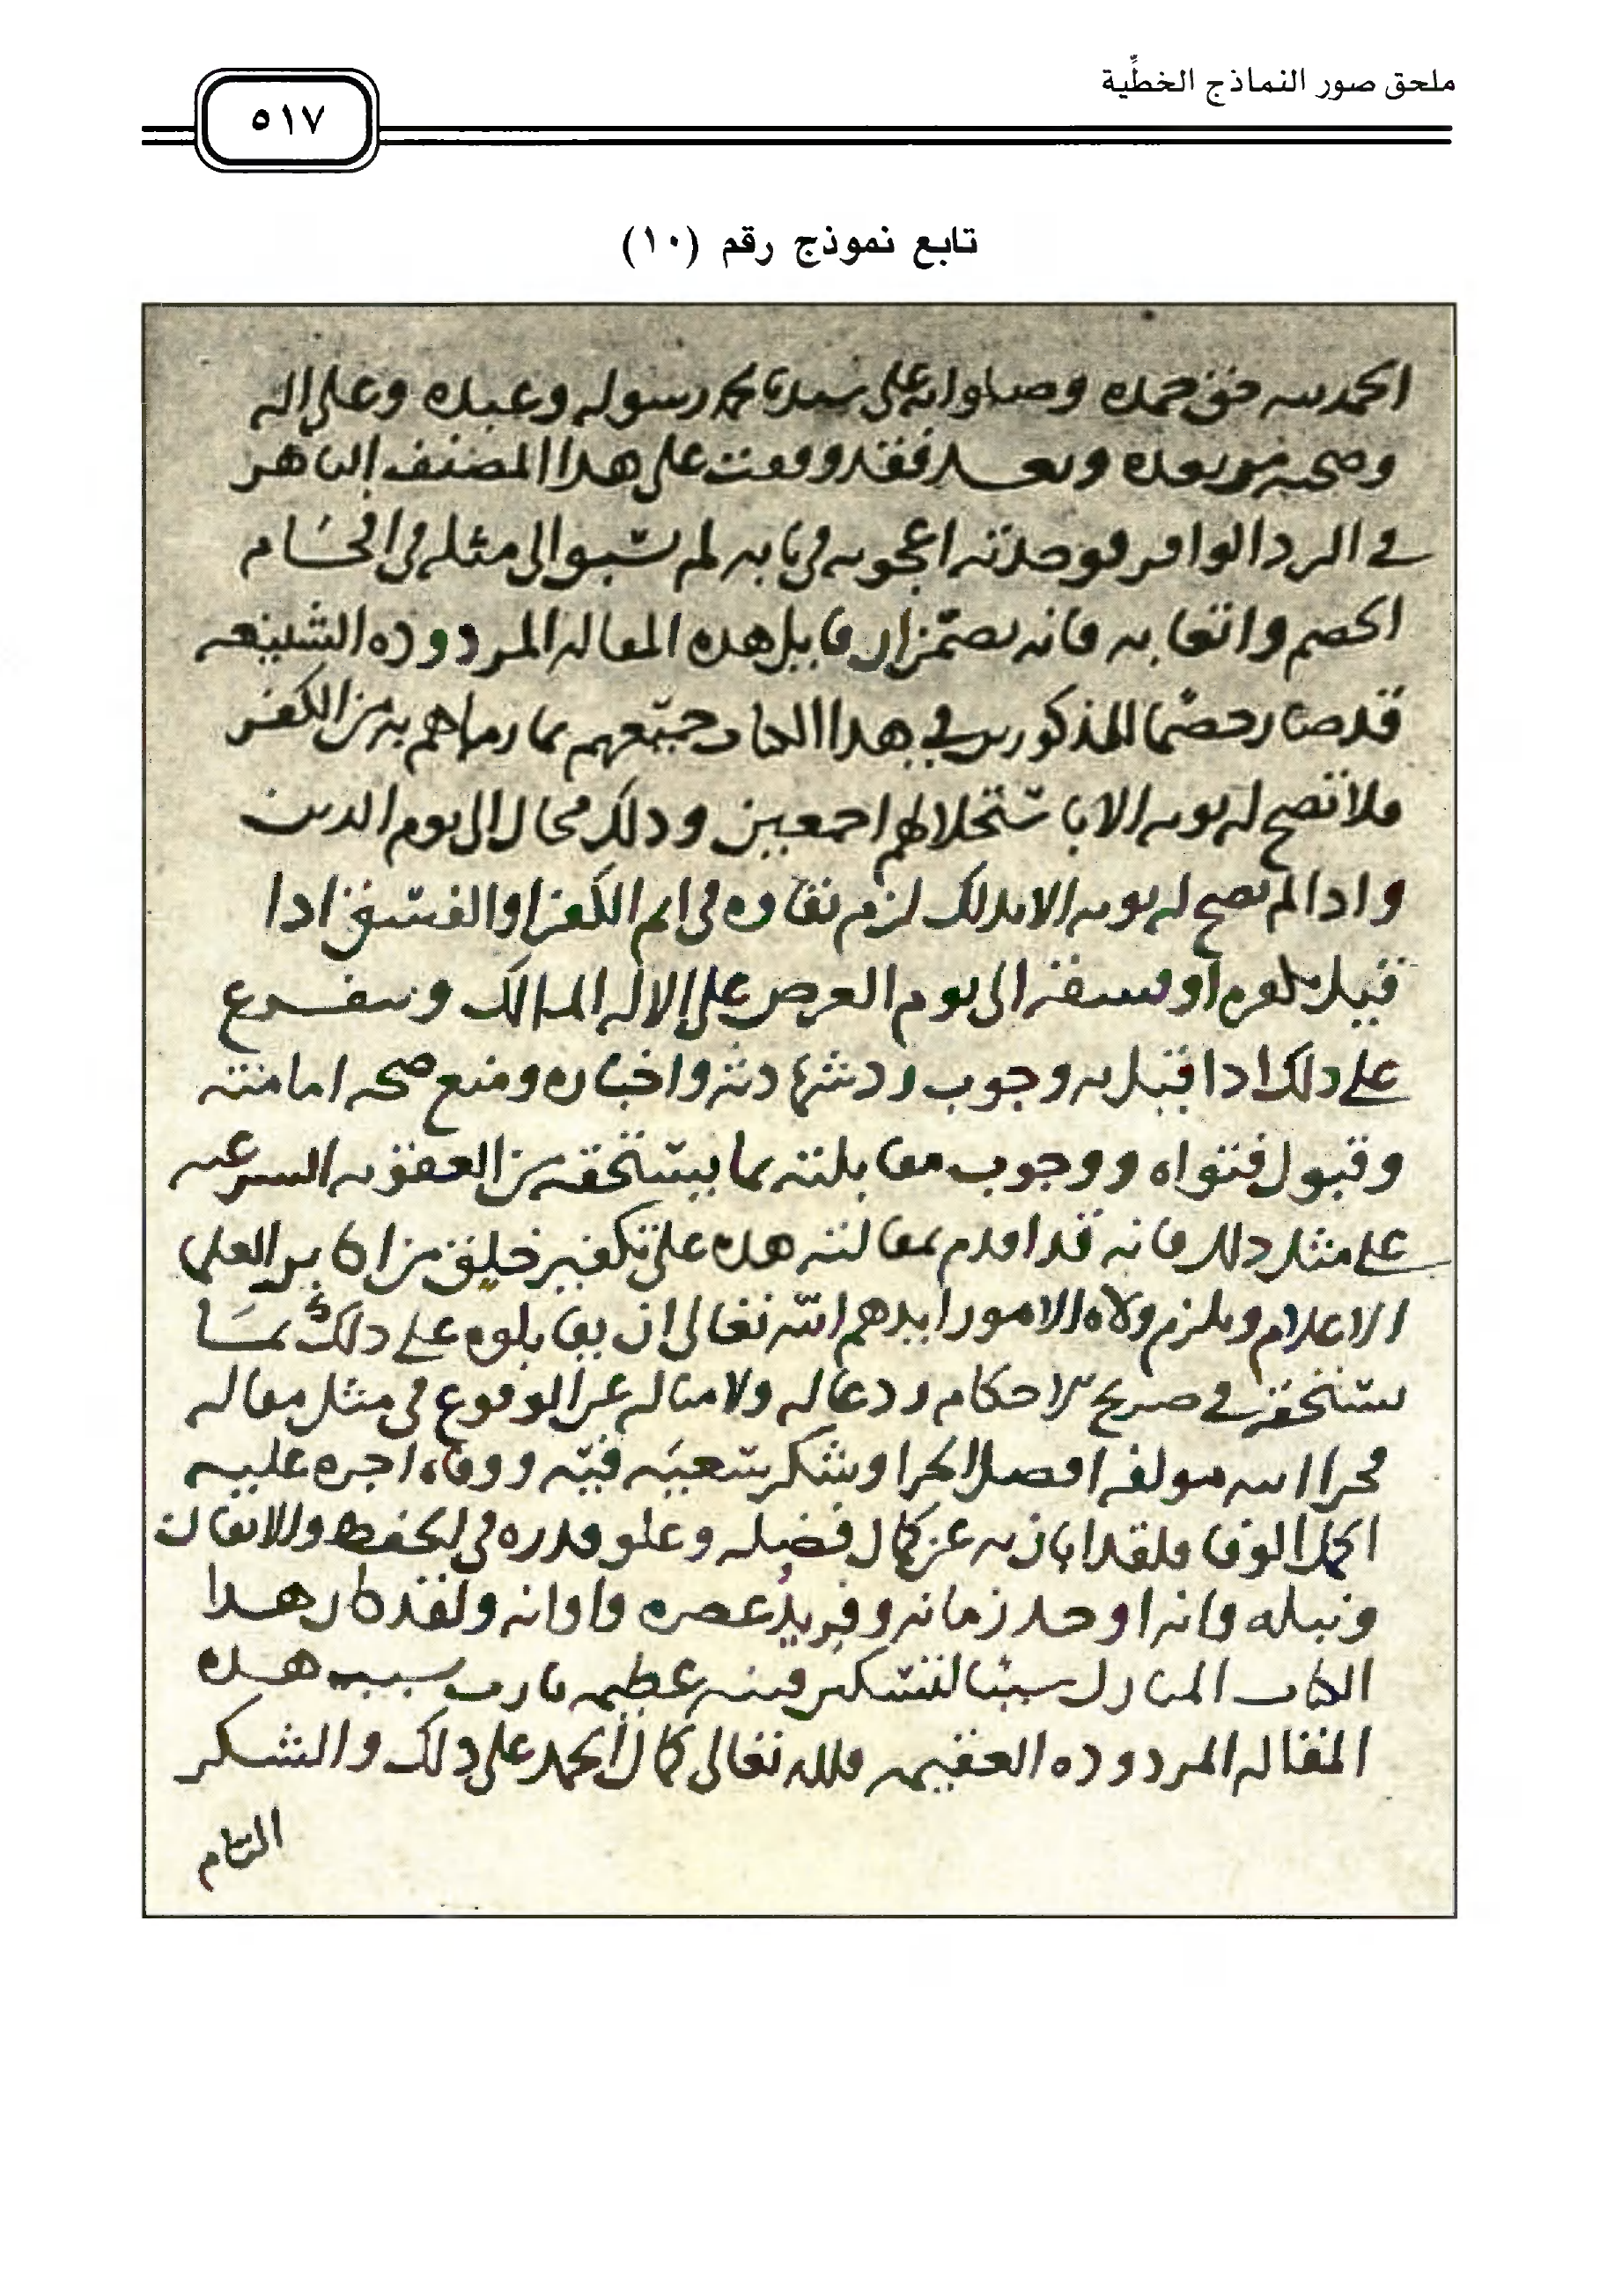 ملحق صور النماذج الخطِّية
٥١٧
تابع نموذج رقم (١٠)
الحمد لله حق حمده وصلواته على سيدنا محمد رسوله وعبده وعلى اله
وصحبه من بعده وبعد فقد وقفت على هذا المصنف الباهر
في الرد الوافر فوجدته اعجوبه في بابه لم يسبق الى مثله في افحام
الخصم واتعابه فانه تضمن ان قايل هذه المقاله المردوده الشنيعه
قد صار خصما للمذكورين في هذا الكتاب جميعهم بما رماهم به من الكفر
فلا تصح له توبه الا باستحلالهم اجمعين وذلك محال الى يوم الدين
واذا لم تصح له توبه الا بذلك لزم بقاوه في اثم الكفر او الفسق اذا
قيل بكفره او فسقه الى يوم العرض على الاله المالك ويتفرع
على ذلك اذا قيل به وجوب رد شهادته واخباره ومنع صحه امامته
وقبول فتواه ووجوب مقابلته بما يستحقه من العقوبه الشرعيه
على مثل ذلك فانه قد اقدم بمقالته هذه على تكفير خلق من اكابر العلماء
الاعلام ويلزم ولاه الامور ايدهم الله تعالى ان يقابلوه على ذلك بما
يستحقه في صريح الاحكام ردعا له ولامثاله عن الوقوع في مثل مقاله
فجزا الله مولفه افضل الجزا وشكر سعيه فيه ووفاه اجره عليه
اكمل الوفا فلقد ابان به عن كمال فضله وعلو قدره في الحفظ والاتقان
ونبله وانه اوحد زمانه وفريد عصره واوانه ولقد كان هذا
الكتاب المبارك سببا لتسكين فتنه عظيمه ثارت بسبب هذه
المقاله المردوده العقيمه فلله تعالى كمال الحمد على ذلك والشكر
التام